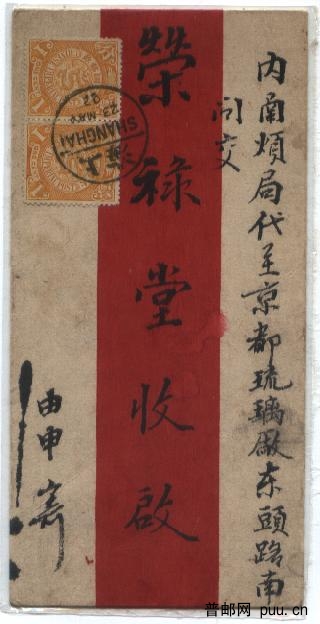 内甬煩局代至京都琉璃厰东頭路南
问交
榮禄堂收啟
由申寄
SHANGHAI
23 MAY
上海
普邮网 puu.cn